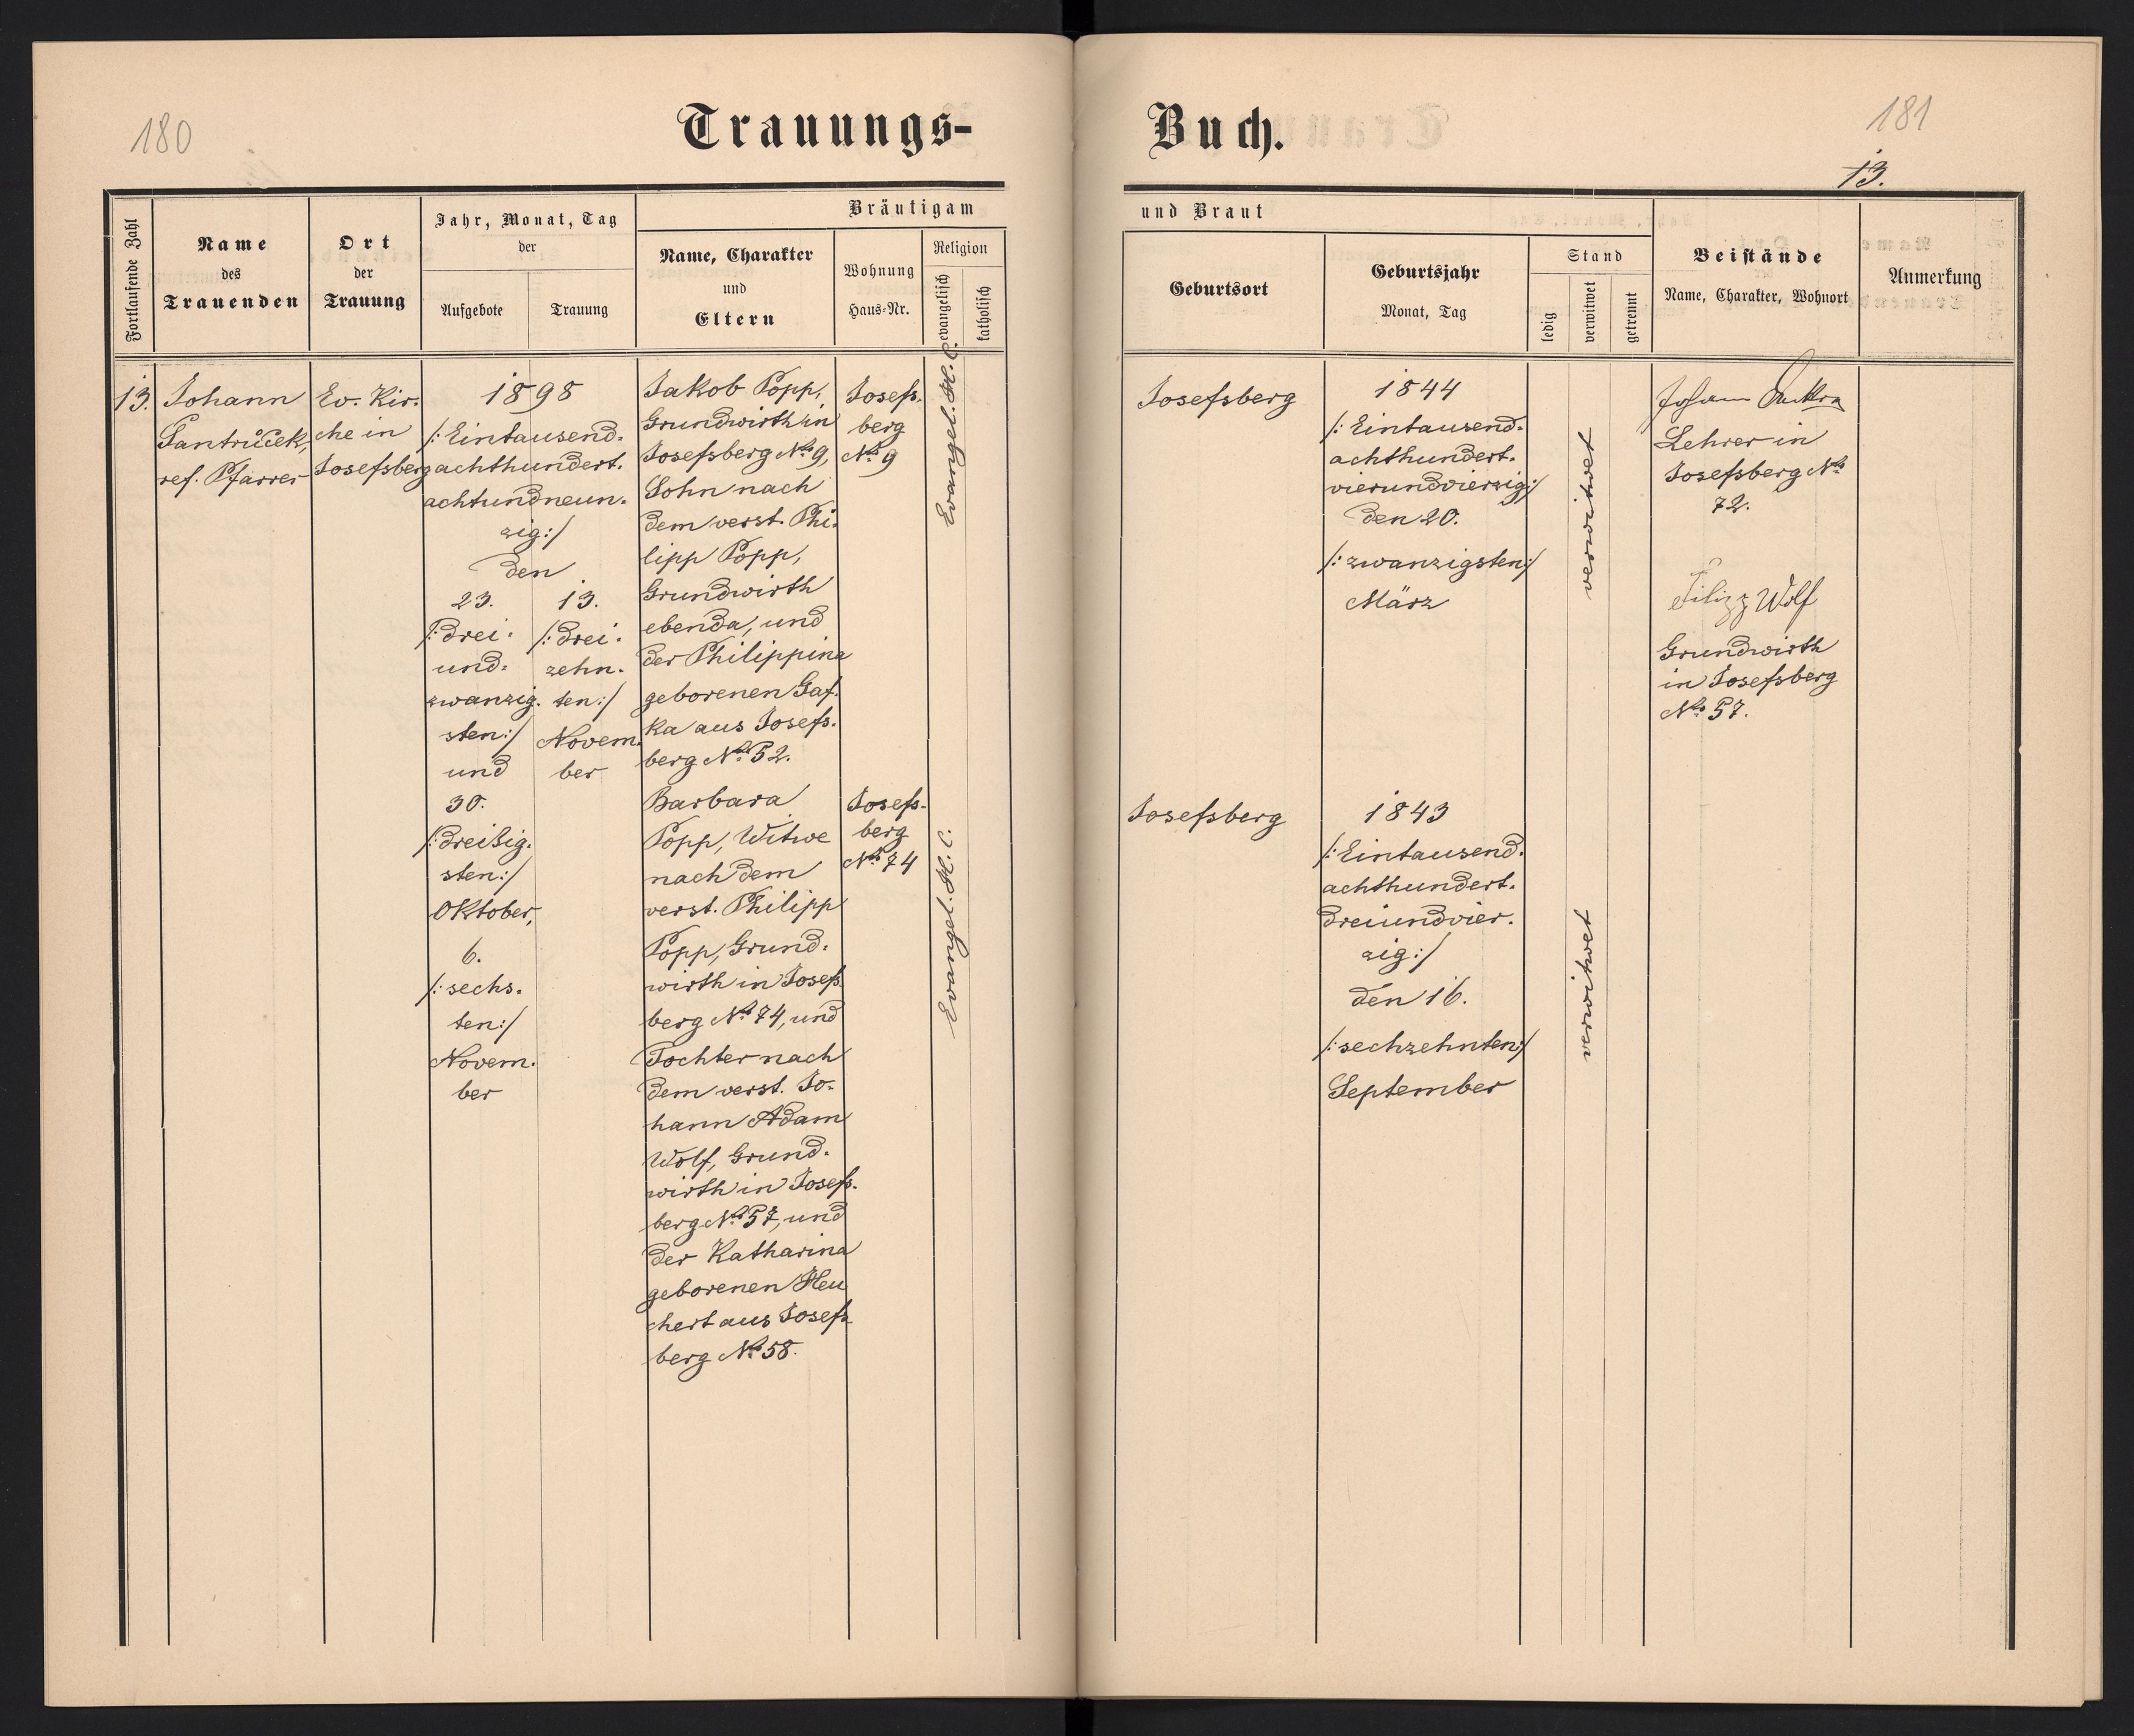 180
Trauungs-
Buch.
181
13.
Fortlaufende Zahl
Name
des
Trauenden
Ort
der
Trauung
Jahr, Monat, Tag
der
Aufgebote
Trauung
Bräutigam
Name, Charakter
und
Eltern
Wohnung
Haus-Nr.
Religion
evangelisch
katholisch
und Braut
Geburtsort
Geburtsjahr
Monat, Tag
Stand
ledig
verwitwet
getrennt
Beistände
Name, Charakter, Wohnort
Anmerkung
13.
Johann
Santrůček,
ref. Pfarrer
Ev. Kir-
che in
Josefsberg
1898
/: Eintausend-
achthundert-
achtundneun-
zig :/
den
23.
/: drei-
und-
zwanzig-
sten :/
und
30.
/: dreißig-
sten :/
Oktober,
6.
/: sechs-
ten :/
Novem-
ber
13.
/: drei-
zehn-
ten :/
Novem-
ber
Jakob Popp,
Grundwirth in
Josefsberg No 9,
Sohn nach
dem verst. Phi-
lipp Popp,
Grundwirth
ebenda, und
der Philippina
geborenen Gaf-
ka aus Josefs-
berg No 52.
Josefs-
berg
No 9
Evangel. H. C.
Josefsberg
1844
/: Eintausend-
achthundert-
vierundvierzig :/
den 20.
/: zwanzigsten :/
März
verwitwet
Johann
Lehrer in
Josefsberg No
72.
Filipp Wolf
Grundwirth
in Josefsberg
No 57.
Barbara
Popp, Witwe
nach dem
verst. Philipp
Popp, Grund-
wirth in Josefs-
berg No 74, und
Tochter nach
dem verst. Jo-
hann Adam
Wolf, Grund-
wirth in Josefs-
berg No 57, und
der Katharina
geborenen Heu
chert aus Josefs-
berg No 58.
Josefs-
berg
No 74
Evangel. H. C.
Josefsberg
1843
/: Eintausend-
achthundert-
dreiundvier-
zig :/
den 16.
/: sechzehnten :/
September
verwitwet